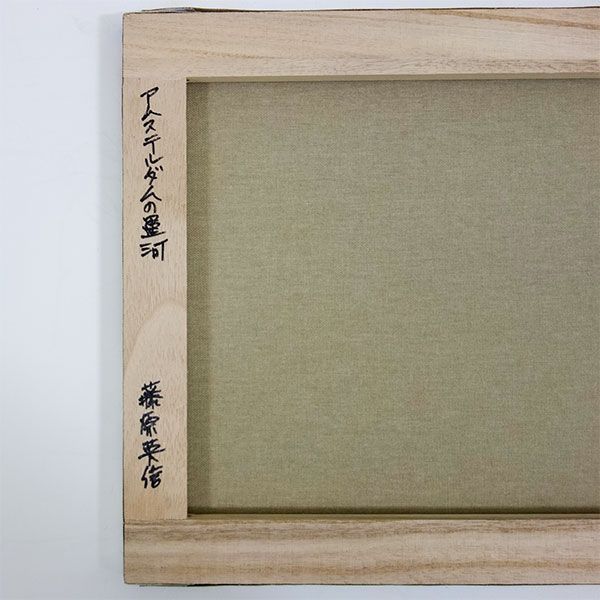 アムステルダムの運河
藤原英信